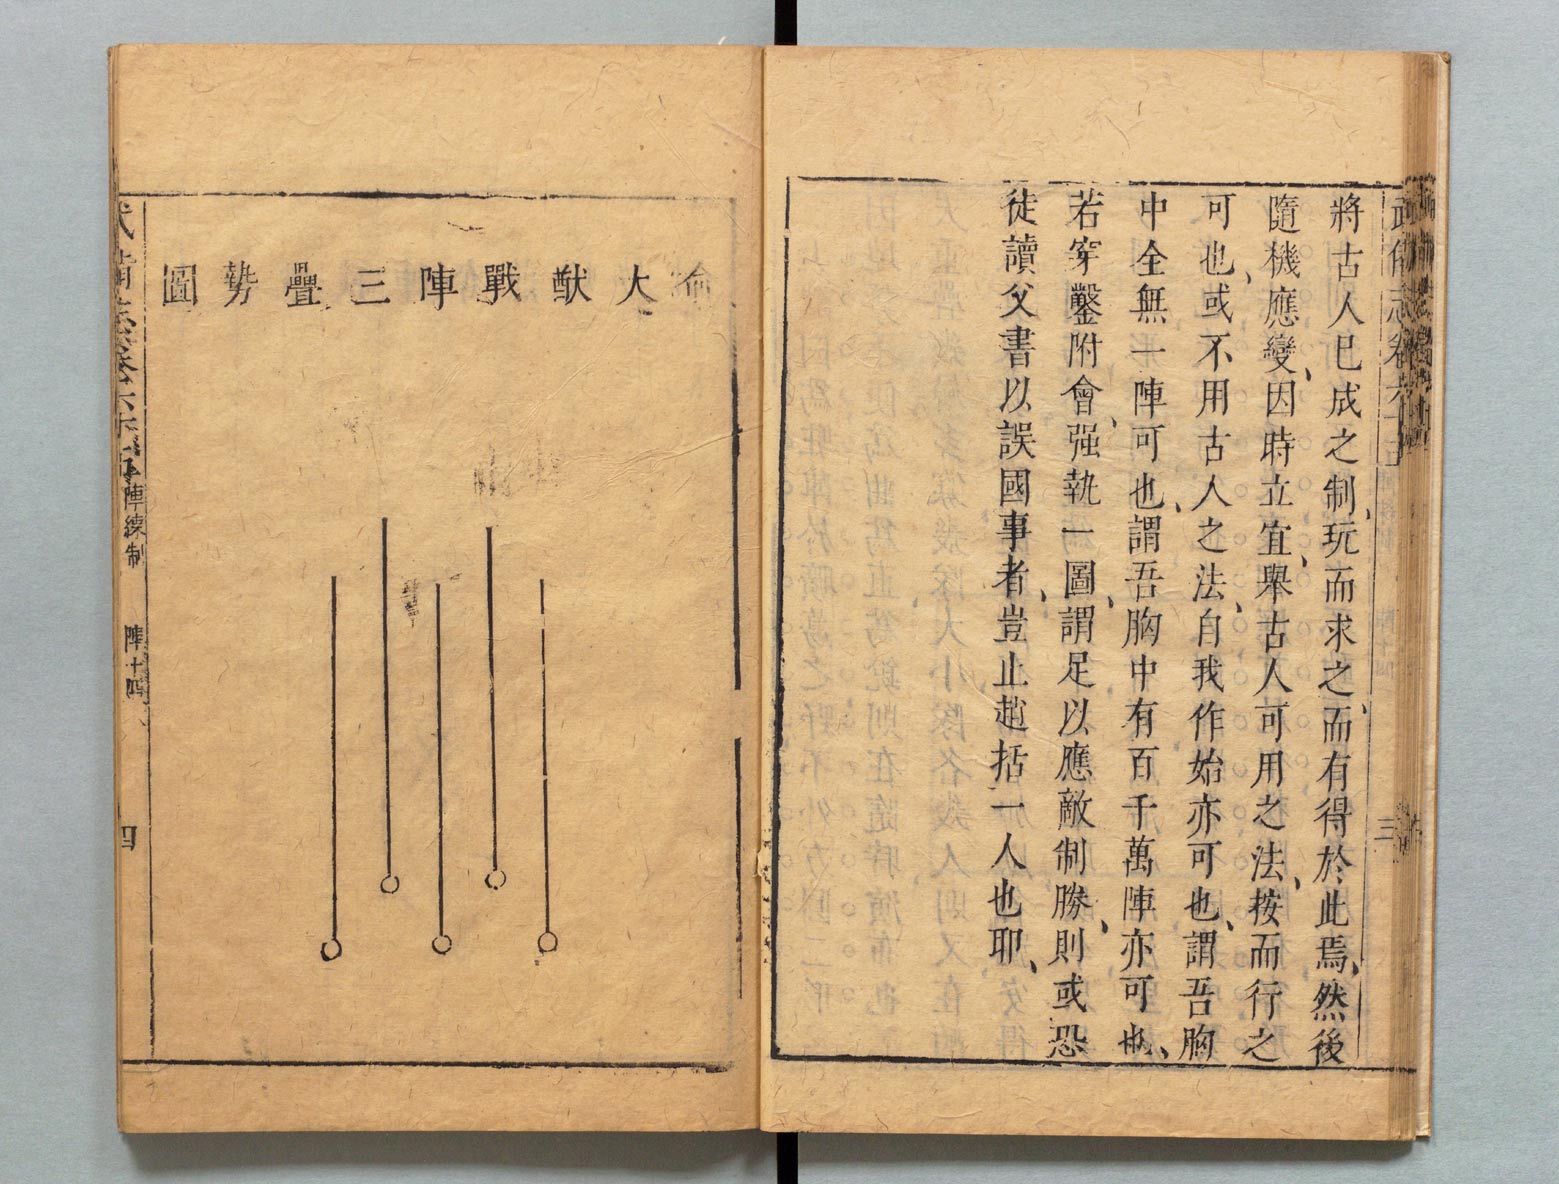 將古人已成之制、玩而求之、而有得於此焉、然後
隨機應變、因時立宜、舉古人可用之法、按而行之
可也、或不用古人之法、自我作始亦可也、謂吾胸
中全無一陣可也、謂吾胸中有百千萬陣亦可也、
若穿鑿附會、强執一圖、謂足以應敵制勝、則或恐
徒讀父書以誤國事者、豈止趙括一人也耶、
三
俞大猷戰陣三疊勢圖
陣練制
陣十四
四